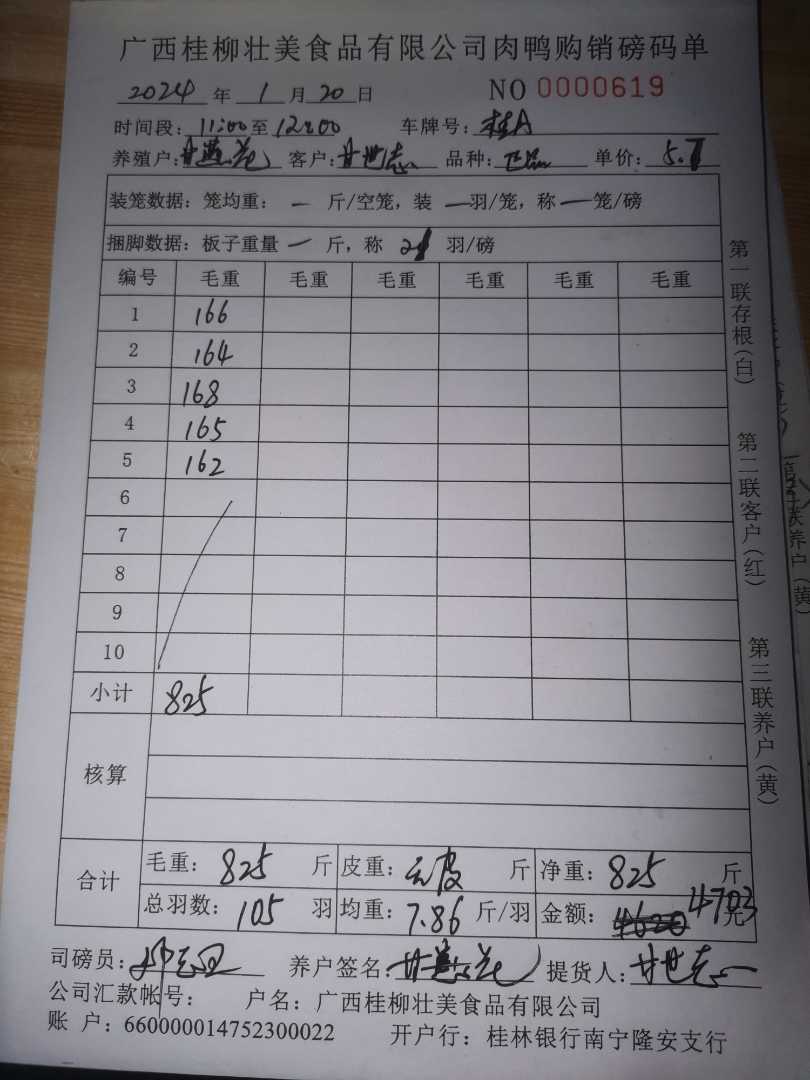 广西桂柳壮美食品有限公司肉鸭购销磅码单
2024 年 1 月 20 日 NO 0000619
时间段: 11:00 至 12:00 车牌号: 桂A
养殖户: 甘莲花 客户: 甘世志 品种: 单价: 5.7
装笼数据: 笼均重: 一 斤/空笼, 装 一 羽/笼, 称 一 笼/磅
捆脚数据: 板子重量 一 斤, 称 21 羽/磅
编号 毛重 毛重 毛重 毛重 毛重 毛重
1 166
2 164
3 168
4 165
5 162
6
7
8
9
10
小计 825
核算
合计 毛重: 825 斤 皮重: 皮 斤 净重: 825 斤
总羽数: 105 羽 均重: 7.86 斤/羽 金额: 4620 4703 元
司磅员: 养户签名: 甘莲花 提货人: 甘世志
公司汇款帐号: 户名: 广西桂柳壮美食品有限公司
账 户: 660000014752300022 开户行: 桂林银行南宁隆安支行
第一联存根(白)
第二联客户(红)
第三联养户(黄)